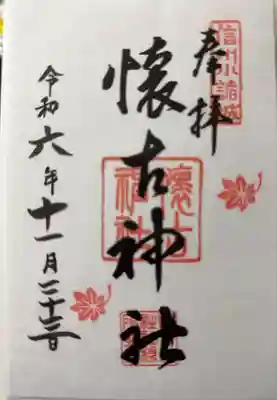 奉拝
信州小諸城
懐古神社
懐古神社
令和六年十一月二十三日